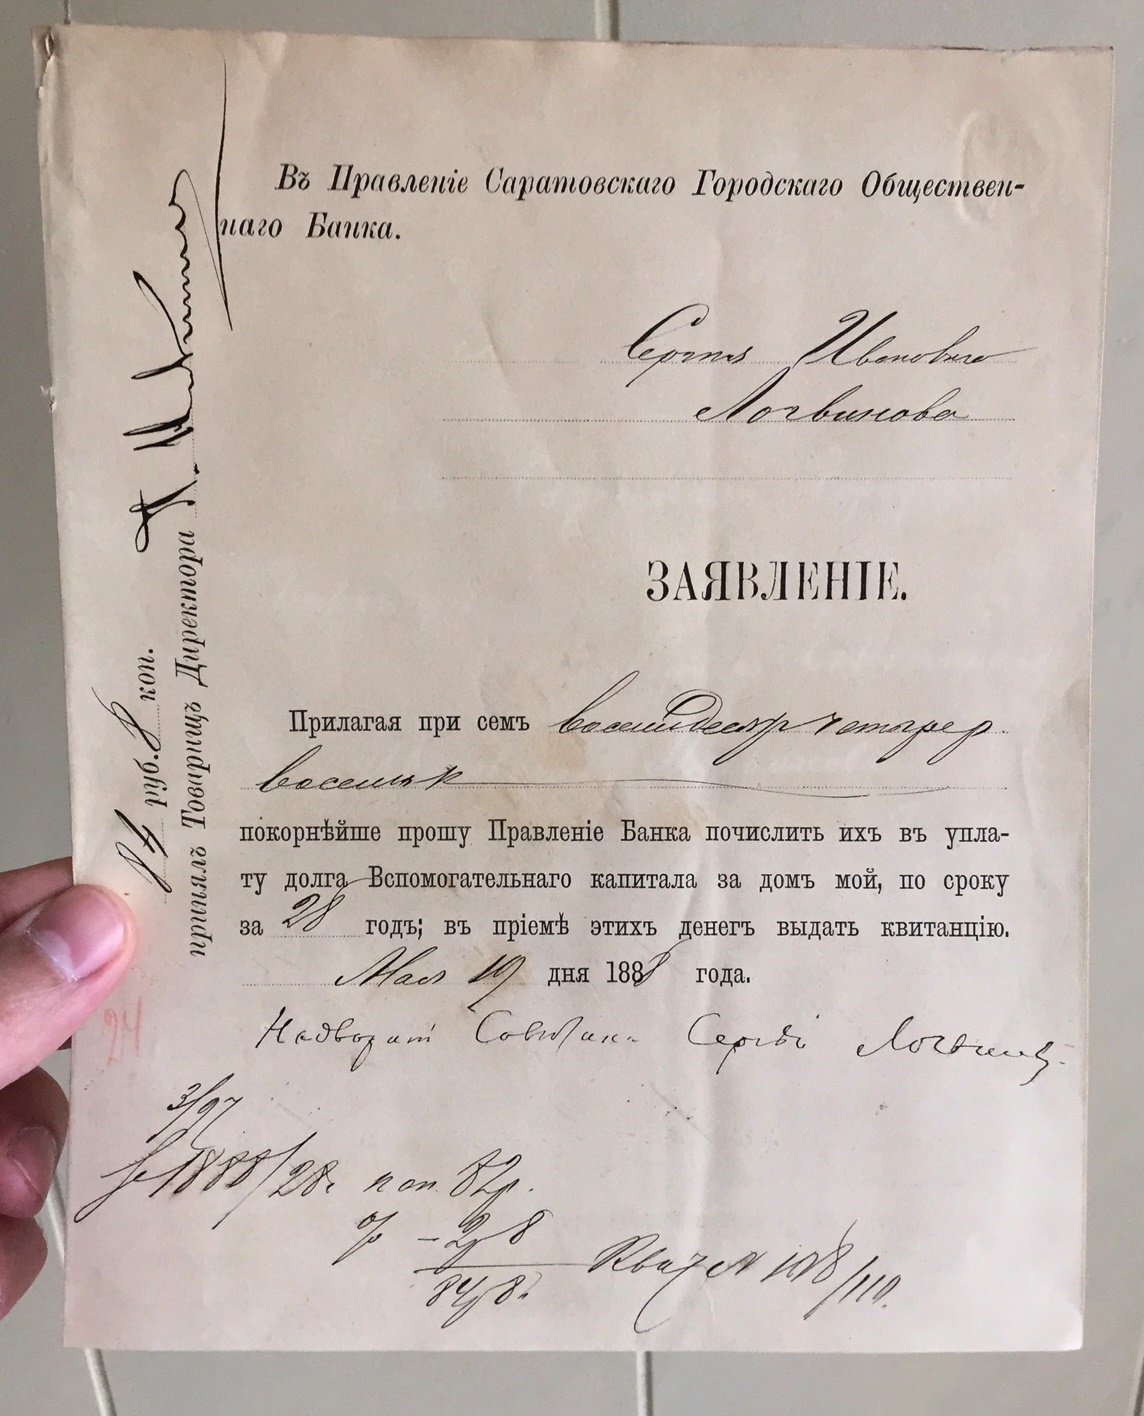 Въ Правленіе Саратовскаго Городскаго Обществен-
наго Банка.
Сергѣя Ивановича
Логвинова
ЗАЯВЛЕНІЕ.
Прилагая при семъ восемьдесятъ четыре р.
восемь к
покорнѣйше прошу Правленіе Банка почислить ихъ въ упла-
ту долга Вспомогательнаго капитала за домъ мой, по сроку
за 28 годъ; въ пріемѣ этихъ денегъ выдать квитанцію.
Мая 19 дня 1888 года.
Надворный Совѣтникъ Сергѣй Логвиновъ
84 руб. 8 коп.
принялъ Товарищъ Директора
24
3/97
1888/28 кап. 82р.
% – 2р 8
84р 8к
Квит №